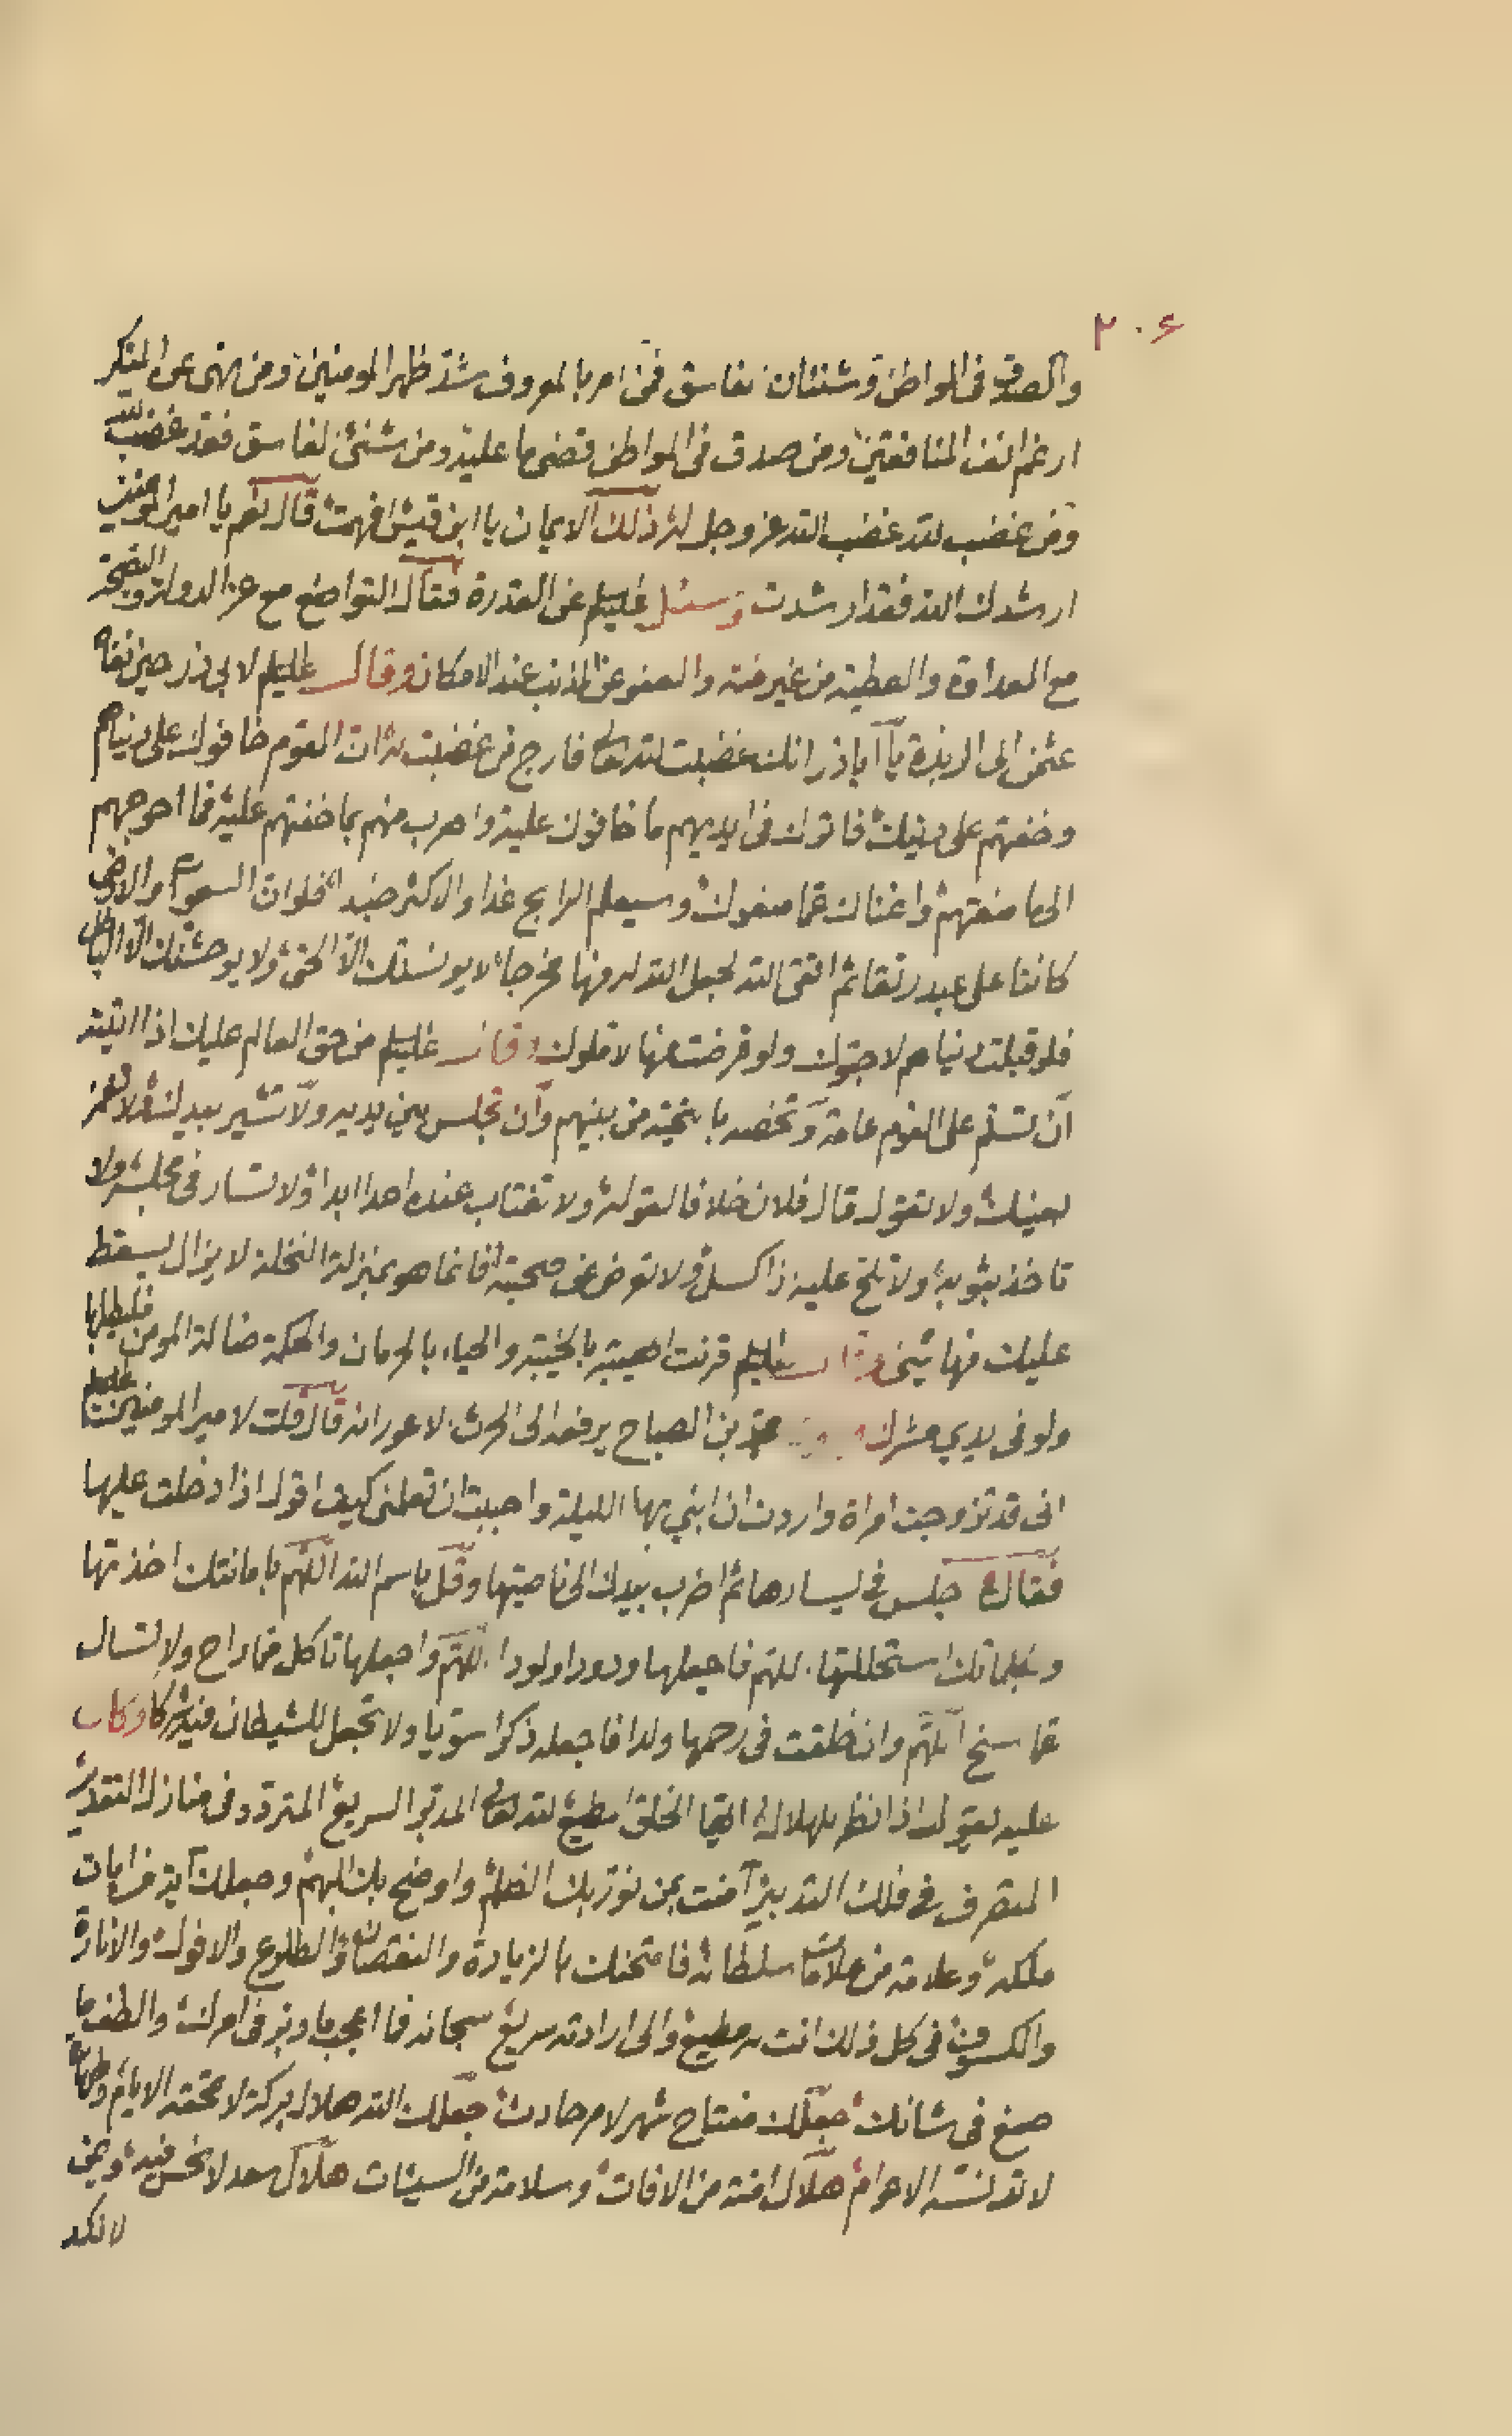 ٢٠۶
والصدق فى المواطن وشنئان الفاسق فمن امر بالمعروف شد ظهر المومنين ومن نهى عن المنكر
ارغم انف المنافقين ومن صدق فى المواطن قضى ما عليه ومن شنئ الفاسق فقد غضب لله
ومن غضب لله غضب الله عز وجل له ذلك الايمان يا ابن قيس افهمت قال نعم يا امير المومنين
ارشدك الله فقد ارشدت وسئل عليلم عن القدرة فقال التواضع مع عز الدولة والنصيحة
مع العداوة والعطية من غير منة والعفو عن المذنب عند الامكان وقال عليلم لابى ذر حين نفاه
عثمن الى الربذة يا اباذر انك غضبت لله تعالى فارج من غضبت له ان القوم خافوك على دنياهم
وخفتهم على دينك فاترك فى ايديهم ما خافوك عليه واهرب منهم بما خفتهم عليه فما احوجهم
الى ما منعتهم واغناك عما منعوك وسيعلم الرابح غدا والاكثر حسدا فلو ان السموات والارض
كانتا على عبد رتقا ثم اتقى الله لجعل الله له منها مخرجا لا يونسنك الا الحق ولا يوحشنك الا الباطل
فلو قبلت دنياهم لاحبوك ولو قرضت منها لامنوك وقال عليلم من حق العالم عليك اذا اتيته
ان تسلم على القوم عامة وتخصه بالتحية من بينهم وان تجلس بين يديه ولا تشير بيدك ولا تغمز
بعينك ولا تقول قال فلان خلافا لقوله ولا تغتاب عنده احدا ابدا ولا تسار فى مجلسه ولا
تاخذ بثوبه ولا تلح عليه اذا كسل ولا تعرض عن صحبته فانما هو بمنزلة النخلة لا يزال يسقط
عليك منها شئ وقال عليلم قرنت الهيبة بالخيبة والحياء بالحرمان والحكمة ضالة المومن فليطلبها
ولو فى يدي مشرك محمد بن الصباح يرفعه الى الحرث الاعور انه قال قلت لامير المومنين عليلم
انى قد تزوجت امراة واردت ان ابني بها الليلة واحببت ان تعلمنى كيف اقول اذا دخلت عليها
فقال اجلس فى يسارها ثم اضرب بيدك الى ناصيتها وقل باسم الله اللهم بامانتك اخذتها
وبكلماتك استحللتها اللهم فاجعلها ودودا ولودا اللهم واجعلها تاكل مما راح ولا تسال
عما سنح اللهم وان خلقت فى رحمها ولدا فاجعله ذكرا سويا ولا تجعل للشيطان فيه شركا وكان
عليه يقول اذا نظر للهلال ايها الخلق المطيع لله تعالى المدبر السريع المتردد فى منازل التقدير
المتصرف فى فلك التدبير آمنت بمن نور بك الظلم واوضح بك البهم وجعلك آية من ايات
ملكه وعلامة من علامات سلطانه فامتحنك بالزيادة والنقصان والطلوع والافول والانارة
والكسوف فى كل ذلك انت له مطيع والى ارادته سريع سبحانه فما اعجب ما دبر فى امرك والطف ما
صنع فى شانك جعلك مفتاح شهر لامر حادث جعلك الله هلال بركة لا تمحقه الايام وطهارة
لا تدنسه الاعوام هلال امنة من الافات وسلامة من السيئات هلال سعد لا نحس فيه ويمن
لا نكد